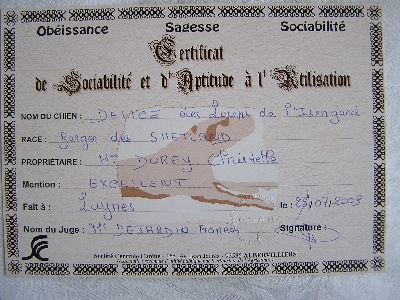 Obéissance Sagesse Sociabilité
Certificat
de Sociabilité et d'Aptitude à l'Utilisation
NOM DU CHIEN : DEVICE des Loups de l'Isengard
RACE : Berger des SHETLAND
PROPRIÉTAIRE : Mme DUREY Christelle
Mention : EXCELLENT
Fait à : Luynes le : /07/2009
Nom du Juge : Mr DEJARDIN Signature :
Société Centrale Canine - 155, Av. Jean Jaurès - 93535 AUBERVILLIERS